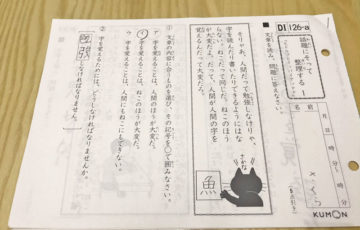 DⅠ 126-a
話題にそって
整理する 1
月 日
名前
時 分
時 分
■ 文章を読み、問題に答えなさい。
そりゃあ、人間だって勉強しなけりゃ、
字を読んだり書いたりできるようにはな
らない。ねこだって同じだ。ねこのほう
が大変だよ。だって、人間が人間の字を
覚えるんだって大変だろ。
さかな
魚
① 文章の内容に合うものを選び、その記号を○で囲みなさい。
ア 字を覚えることは、人間のほうが大変だ。
イ 字を覚えることは、ねこのほうが大変だ。
ウ 字を覚えることは、人間にもねこにもできない。
② 字を覚えるためには、どうしなければなりませんか。
しなければなりません。
KUMON